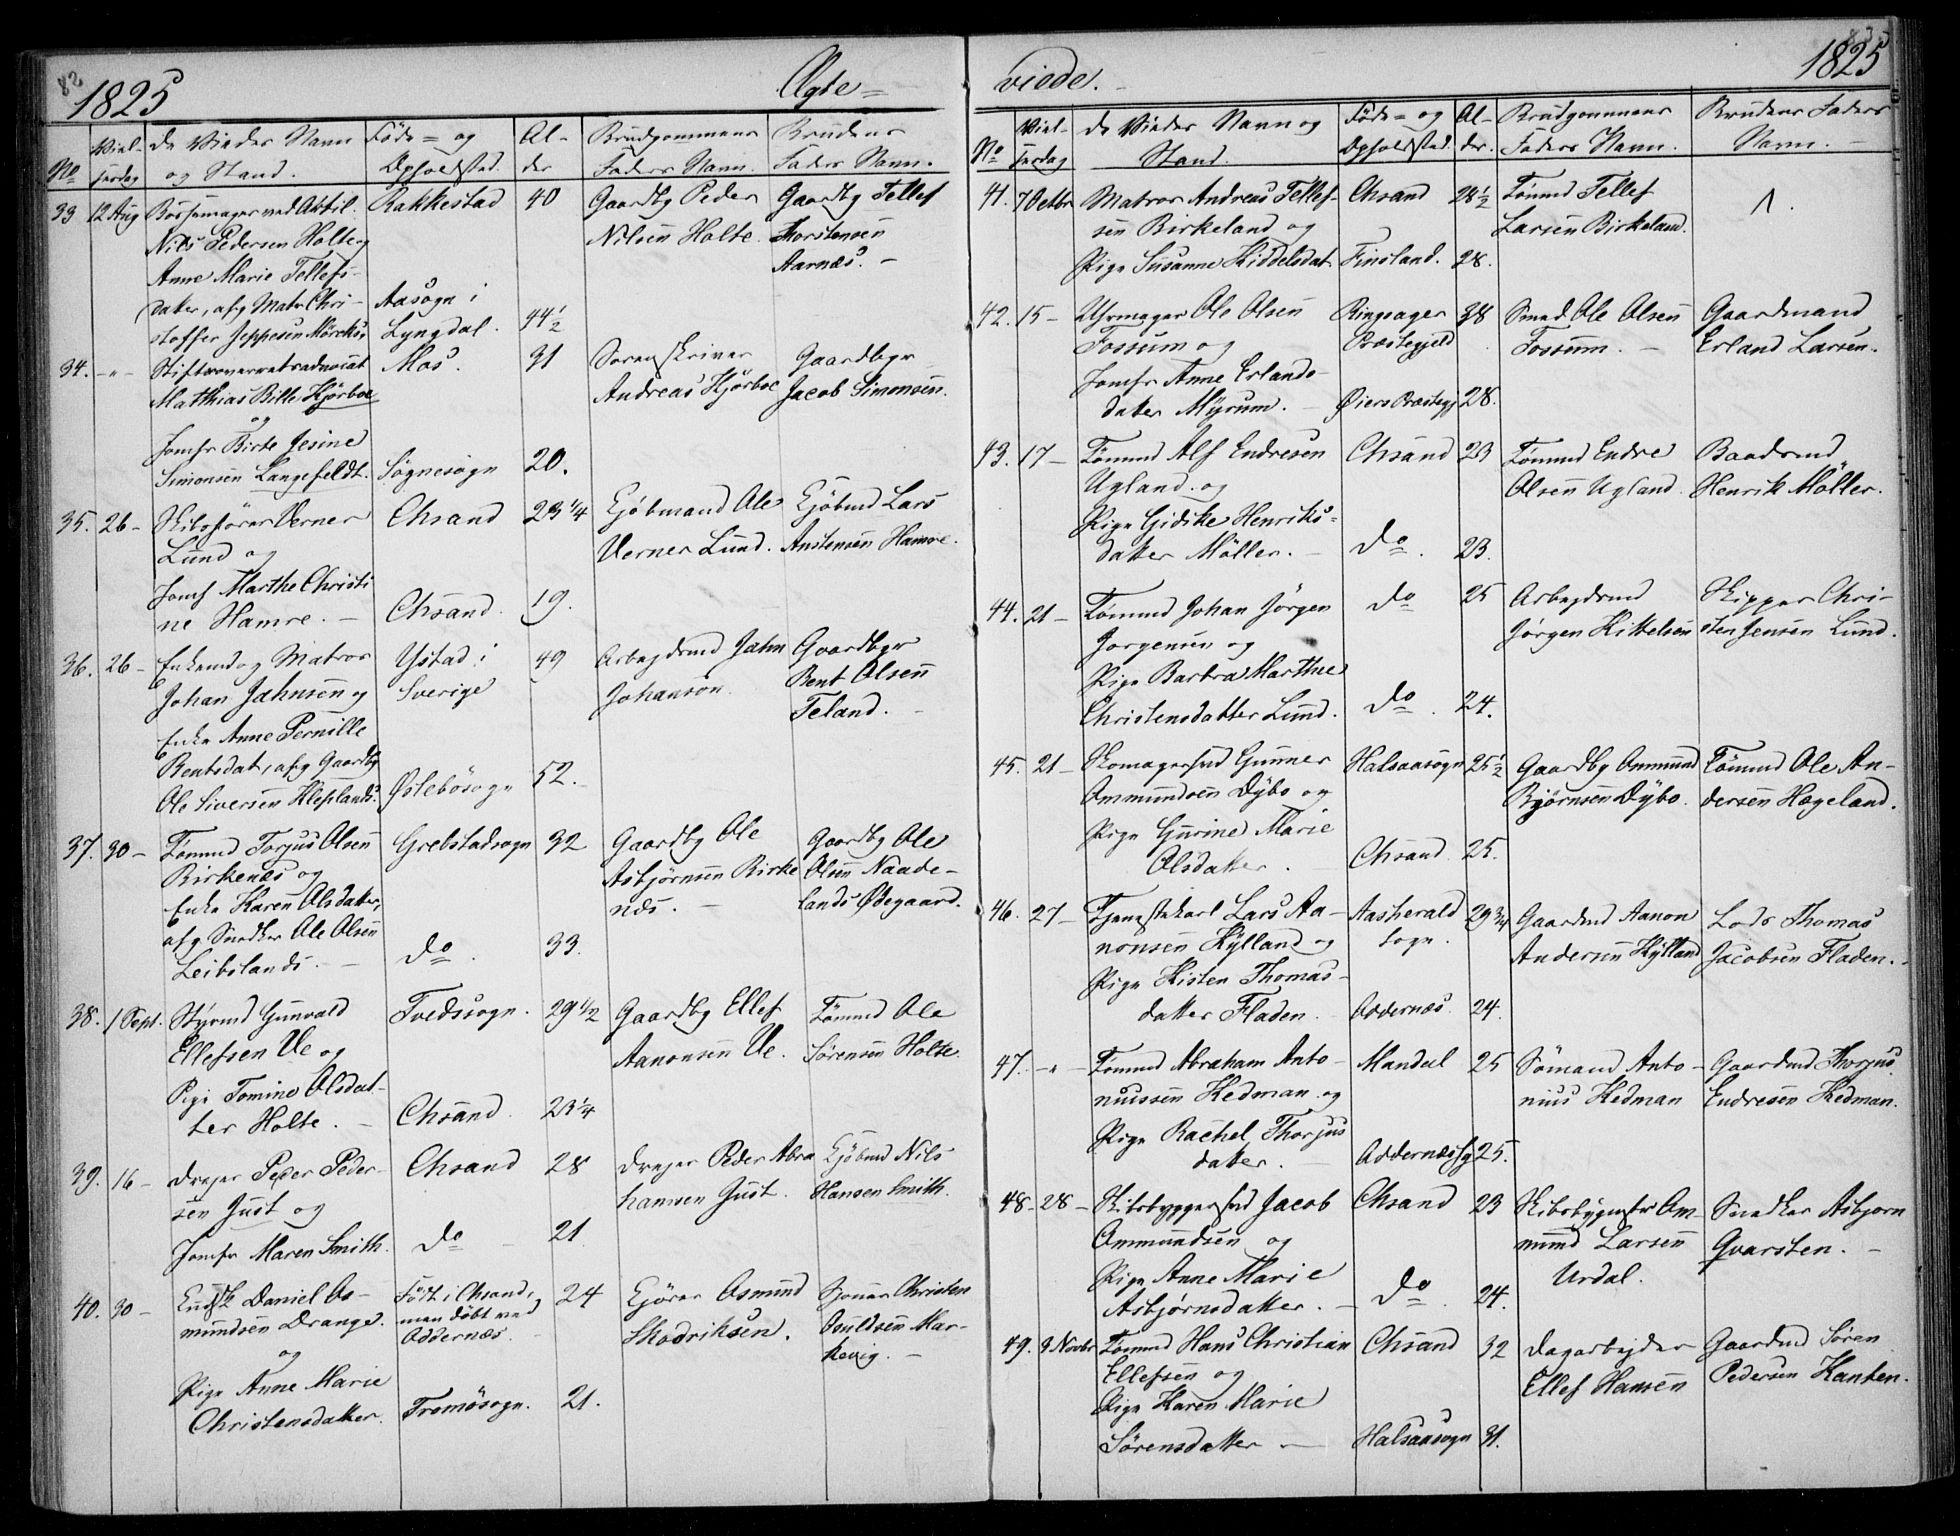 82
1825
Ægte=
No
Viel-
sesdag
de Viedes Navn
og Stand.
Føde= og
Opholdsted.
Al-
der
Brudgommens
Faders Navn.
Brudens
Faders Navn.
33 12 Aug
Bøssemager ved Artil.
Nils Pedersen Holte og
Anne Marie Tellefs-
datter, afg Matr Chri-
stoffer Jeppesen Mörcks,
Rakkestad
40
Aasogn i
Lyngdal.
44½
Gaardbg Peder
Nilsen Holte.
Gaardbg Tellef
Thorstensen
Aarnæs. -
34. -"-
Stiftsoverretsadvocat
Matthias Bille Kjörboe
og
Jomfr Birte Jesine
Simonsen Langefeldt.
Mos.
31
Søgnesogn
20.
Sorenskriver
Andreas Kjörboe
Gaardbgr
Jacob Simonsen.
35. 26 -
Skibsfører Verner
Lund og
Jomf Marthe Christi
ne Hamre. -
Chsand
23 1/4
Chsand.
19.
Kjøbmand Ole
Verner Lund.
Kjøbmd Lars
Anstensen Hamre.
36. 26 -
Enkemd og Matros
Johan Jahnsen og
Enke Anne Pernille
Bentsdat, afg Gaardbg
Ole Siversen Kleplands.
Ystad i
Sverige
49
Østebösogn
52.
Arbejdsmd Jahn
Johanson.
Gaardbgr
Bent Olsen
Teland. -
37. 30 -
Tømmd Torjus Olsen
Birkenæs og
Enke Karen Olsdatter,
afg Snedker Ole Olsen
Leibslands. -
Grebstadsogn
32
do.
33.
Gaardbg Ole
Asbjörnsen Birke
næs. -
Gaardbg Ole
Olsen Naade-
lands Ødegaard.
38. 1 Sept.
Styrmd Gunvald
Ellefsen Ue og
Pige Tomine Olsdat-
ter Holte. -
Tvedssogn.
29 1/2
Chsand.
23 1/4
Gaardbg Ellef
Aanonsen Ue.
Tømmd Ole
Sørensen Holte.
39. 16 -
Drejer Peder Peder-
sen Just og
Jomfr Maren Smith.
Chsand
28
do -
21
Drejer Peder Abra
hamsen Just.
Kjøbmd Nils
Hansen Smith.
40. 30 -
Daniel Os-
mundsen Drange.
og
Pige Anne Marie
Christensdatter.
Født i Chsand,
men döbt ved
Oddernæs.
24
Tromösogn.
21.
Kjører Osmund
Skodriksen.
Christen
Osuldsen Mar-
kevig. -
835
1825
viede. -
No
Viel-
sesdag
de Viedes Navn og
Stand.
Føde= og
Opholdsted.
Al-
der.
Brudgommens
Faders Navn.
Brudens Faders
Navn. -
41. 7 Octbr
Matros Andreas Tellef-
sen Birkeland og
Pige Susanne Kiddelsdat
Chsand
28½
Finsland.
28.
Tømmd Tellef
Larsen Birkeland.
42. 15 -
Uhrmager Ole Olsen
Fossum og
Jomfr Anne Erlands-
datter Myrum. -
Ringsager
Præstegjeld
38
Øiers Præstegj
28.
Smed Ole Olsen
Fossum. -
Gaardmand
Erland Larsen.
43. 17 -
Tømmd Alf Endresen
Ugland. og
Pige Gidike Henriks-
datter Möller. -
Chsand
23
do.
23.
Tømmd Endre
Olsen Ugland.
Baadsmd
Henrik Möller.
44. 21 -
Tømmd Johan Jörgen
Jorgensen og
Pige Barbra Marthe
Christensdatter Lund.
do
25
do.
24.
Arbejdsmd
Jörgen Kittelsen
Skipper Chri-
sten Jensen Lund.
45. 21 -
Skomagersvd Gunner
Ommundsen Dybo og
Pige Gurine Marie
Olsdatter.
Halsaasogn
25½
Chsand.
25.
Gaardbg Ommund
Bjørnsen Dybo.
Tømmd Ole An-
dersen Hægeland.
46. 27 -
Tjenestekarl Lars Aa-
nonsen Kylland og
Pige Kisten Thomas-
datter Fladen. -
Aasherald
sogn.
29 3/4
Oddernæs.
24.
Gaardmd Aanon
Andersen Kylland
Lods Thomas
Jacobsen Fladen. -
47. -"-
Tømmd Abraham Anto-
niussen Hedman og
Pige Rachel Thorjus
datter. -
Mandal
25
Oddernæssg
25.
Sömand Anto-
nius Hedman
Gaardmd Thorjus
Endresen Hedman.
48. 28 -
Skibsbyggersvd Jacob
Ommundsen og
Pige Anne Marie
Asbjørnsdatter. -
Chsand
23
do.
24.
Skibsbygmstr Om-
mund Larsen
Urdal.
Snedker Asbjørn
Qvarsten. -
49. 9 Novbr
Tømmd Hans Christian
Ellefsen og
Pige Karen Marie
Sörensdatter -
Chsand
32
Halsaasogn
31.
Dagarbejder
Ellef Hansen
Gaardmd Søren
Pedersen Kanten.